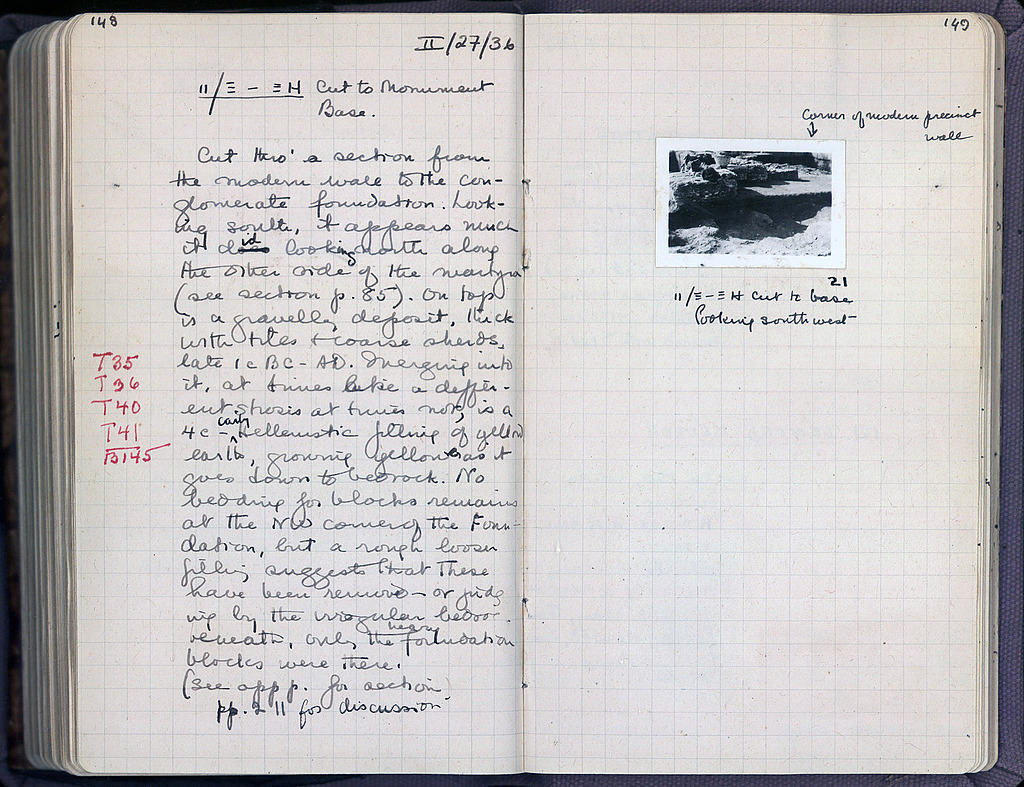 148
II/27/36
"/Ξ – ΞH Cut to Monument
Base.
Cut thro' a section from
the modern wall to the con-
glomerate foundation. Look-
ing south, it appears much
it did looking north along
the other side of the
(see section p. 85). On top
is a gravelly deposit, thick
with tiles + coarse sherds,
T35 late 1c BC – AD. Merging into
T36 it, at times like a differ-
T40 ent strosis at times not, is a
T41 4c – early Hellenistic filling of yellow
B145 earth, growing yellower as it
goes down to bedrock. No
bedding for blocks remains
at the NW corner of the Foun-
dation, but a rough looser
filling suggests that these
have been removed – or judg
ing by the irregular bedroc
beneath, only the heavy foundation
blocks were there.
(See opp p. for section)
pp. 211 for discussion
149
Corner of modern precinct
wall
21
"/Ξ–ΞH Cut to base
looking southwest